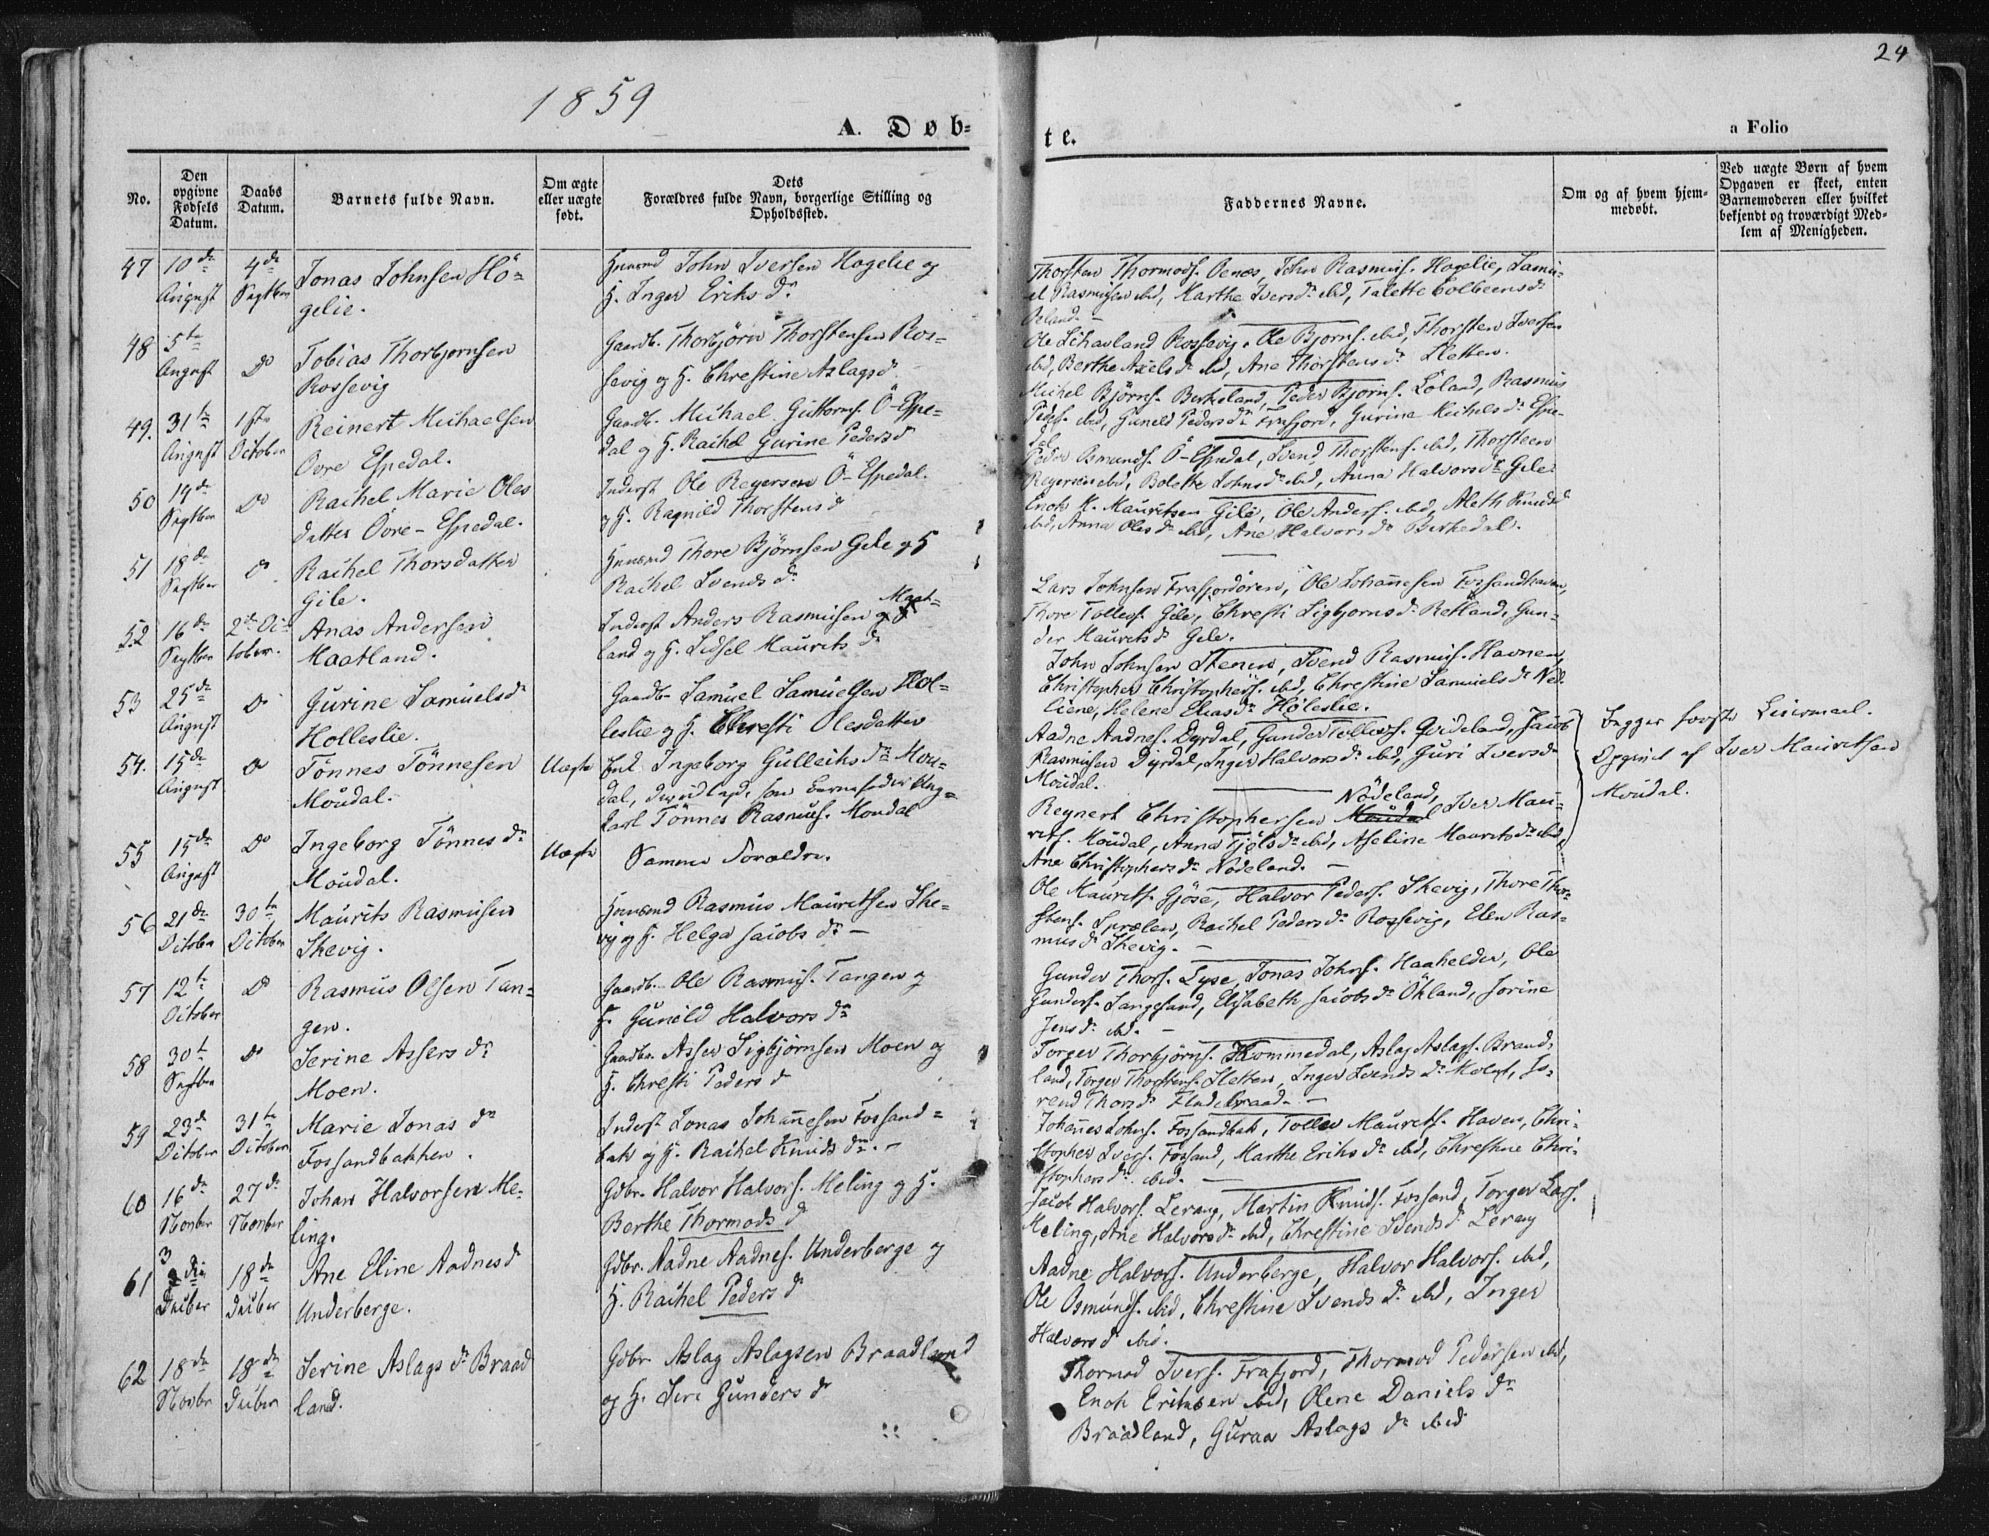 1859
24
A. Døb=
te.
a Folio
No.
Den opgivne Fødsels Datum.
Daabs Datum.
Barnets fulde Navn.
Om ægte eller uægte født.
Dets Forældres fulde Navn, borgerlige Stilling og Opholdssted.
Faddernes Navne.
Om og af hvem hjem-medøbt.
Ved uægte Børn af hvem Opgaven er skeet, enten Barnemoderen eller hvilket bekjendt og troværdigt Med-lem af Menigheden.
47 10de August 4de Septbr
Jonas Johnsen Hö=
gelie.
Huusmd John Iversen Hogelie og
H. Inger Eriks dr
Thorsten Thormods. Oenæs, John Rasmus. Hogelie, Samu-
el Rasmusen ibid, Marthe Ivers dr ibid, Talette Colbeens dr
48 5te August Do
Tobias Thorbjørnsen
Rossevig
Gaardb. Thorbjörn Thorstensen Ros=
sevig og H. Chrestine Aslags d
Ole Rossevig, Ole Bjorns. ibid, Thorsten Iversen
ibid, Berthe Axels dr ibid, Ane Thorstens dr Sletten.
49. 31te August 1ste October
Reinert Michaelsen
Övre Espedal.
Gaardb. Michael Guttorms. Ö-Espe=
dal og H. Rachel Gurine Peders d
Michel Björns. Berkeland, Peder Bjorns. Löland, Rasmus
Peders. ibid, Guneld Peders dr Frafjord, Gurine Michels dr Espe-
dal
50 19de Septber Do
Rachel Marie Oles
datter Övre-Espedal.
Inderst Ole Regersen Ö-Espedal.
og H. Ragnild Thorstens d
Peder Osmunds. Ö-Espedal, Svend Thorstens. ibid, Thorsteen
Regersen ibid, Bolette Johns dr ibid, Anna Halvors dr Gile
51 18de Septber Do
Rachel Thorsdatter
Gile.
Huusmd Thore Björnsen Gele og H
Rachel Svends dr
Enok K. Mauritsen Gile, Ole Anders. ibid, Aleth Knuds d
ibid, Anna Oles dr ibid, Ane Halvors dr Berkedal.
52 16de Septber 2den October.
Anas Andersen
Maatland.
Inderst Anders Rasmusen Maat-
land og H. Sidsel Maurits dr
Lars Johnsen Frafjordören, Ole Johannesen Fossandhaven,
Thore Tolless. Gile, Chresti Sigbjorns dr Retland, Gun-
der Maurits dr Gele.
53 25de August Do
Gurine Samuels dr
Holleslie.
Gaardbr Samuel Samuelsen Hol-
leslie og H. Chresti Olesdatter
John Johnsen Stenen, Svend Rasmus. Havnen,
Christopher Christophers. ibid, Chrestine Samuels dr Ned-
liene, Helene Elias dr Höleslie.
54. 15de August Do
Tönnes Tönnesen
Moudal.
Uægte
Enk Ingeborg Gulleiks dr Mou-
dal, som Barnefader Ung-
karl Tönnes Rasmus. Moudal
Aadne Aadnes. Dyrdal, Gunder Tollevs. Qvideland, Jacob
Rasmusen Dyrdal, Inger Halvors dr ibid, Guri Ivers dr
Moudal.
Begges første Leiermaal.
Opgivet af Iver Mauritsen
Moudal.
55 15de August Do
Ingeborg Tönnes dr
Moudal.
Uægte
Samme Forældre.
Reynert Christophersen Nödeland, Iver Mau-
rits. Moudal, Anna Fjels dr ibid, Aseline Maurits dr ibid,
Ane Christophers dr Nödeland.
56 21de October 30te October
Maurits Rasmusen
Skevig.
Huusmd Rasmus Mauritsen Ske-
vig og H. Helga Jacobs dr
Ole Maurits. Gjöse, Halvor Peders. Skevig, Thore Thor-
stens. Sprælen, Rachel Peders dr Rossevig, Elen Ras-
mus dr Skevig.
57 12te October Do
Rasmus Olsen Tan=
gen.
Gaardb. Ole Rasmus. Tangen og
H. Guneld Halvors dr
Gunder Thors. Lyse, Jonas Johns. Haahelder, Ole
Gunders. Sangesand, Elisabeth Jacobs dr Ökland, Jorine
Jens dr ibid.
58 30te Septber Do
Serine Assers dr
Moen.
Gaardbr. Asser Sigbjörnsen Moen og
H. Chresti Peders d
Torger Thorbjörns. Kommedal, Aslag Aslags. Braad-
land, Torger Thorstens. Sletten, Inger Svends dr Molaf,
rend Thors dr Fladebraad.
59 23de October 31te October
Marie Jonas dr
Fossandbakken.
Inderst Jonas Johannesen Fossand=
bak og H. Rachel Knuds dr.
Johannes Johns. Fossandbak, Tollev Maurits. Haven, Chri-
stopher Ivers. Fossand, Marthe Eriks dr ibid, Chrestine Chri-
stophers dr ibid.
60 16de Novber 27de Novber
Johan Halvorsen Me-
ling.
Gdbr. Halvor Halvors. Meling og H.
Berthe Thormods d
Jacob Halvors. Lerang, Martin Knuds. Fossand, Torger Lars.
Meling, Ane Halvors dr ibid, Chrestine Svends d Lerang
61 3die Decber 18de Decber
Ane Eline Aadnes d
Underberge.
Gdbr. Aadne Aadnes. Underberge og
H. Rachel Peders d
Aadne Halvors. Underberge, Halvor Halvors. ibid,
Ole Osmunds. ibid, Chrestine Svends dr ibid, Inger
Halvors d ibid.
62 18de Novbr 18de Decber
Serine Aslags dr Braad
land.
Gdbr Aslag Aslagsen Braadland
og H. Seri Gunders dr
Thormod Ivers. Frafjord, Thormod Pedersen ibid,
Enok Eriksen ibid, Olene Daniels dr
Braadland, Guraa Aslags dr ibid